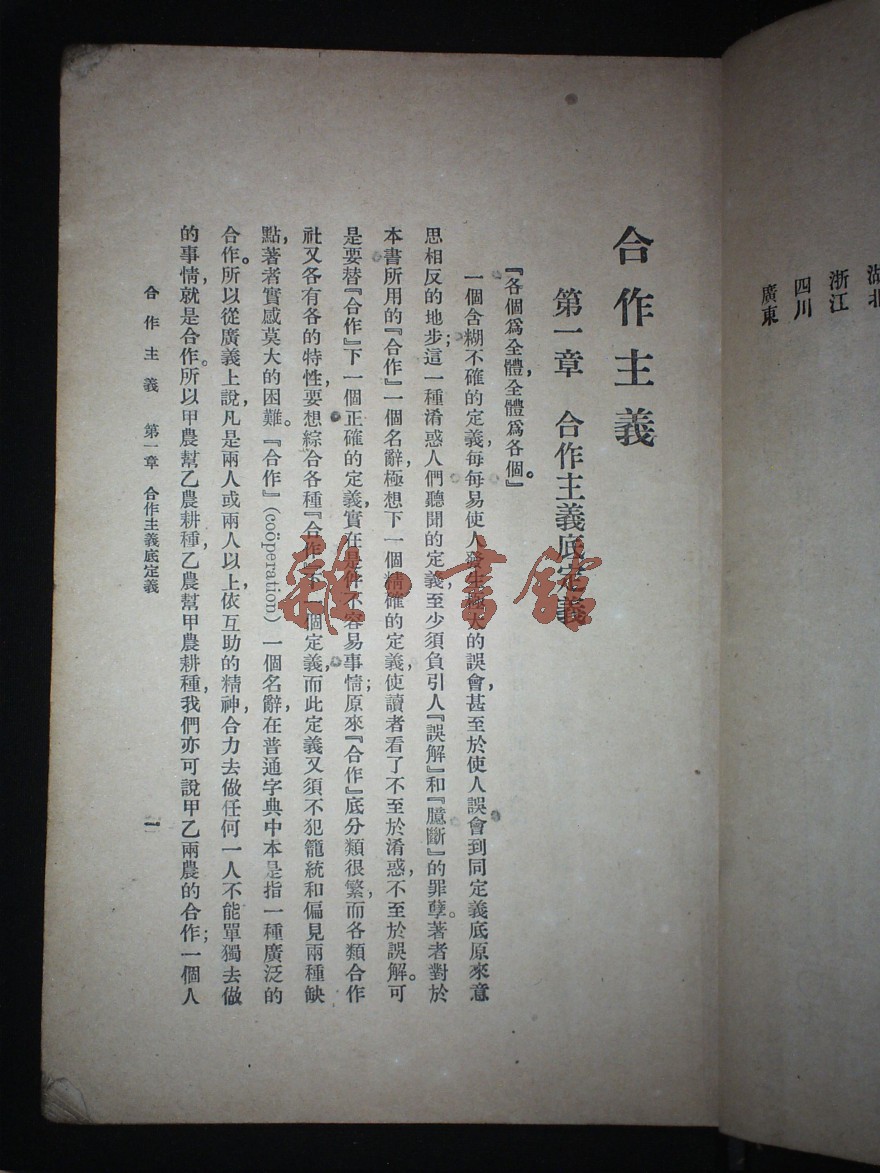 湖北
浙江
四川
廣東
合作主義
第一章　合作主義底定義
『各個爲全體，全體爲各個。』
一個含糊不確的定義，每每易使人發生極大的誤會，甚至於使人誤會到同定義底原來意
思相反的地步；這一種淆惑人們聽聞的定義，至少須負引人『誤解』和『臆斷』的罪孽。著者對於
本書所用的『合作』一個名辭，極想下一個精確的定義，使讀者看了不至於淆惑，不至於誤解。可
是要替『合作』下一個正確的定義，實在是件不容易事情；原來『合作』底分類很繁，而各類合作
社又各有各的特性，要想綜合各種『合作』下一個定義，而此定義又須不犯籠統和偏見兩種缺
點，著者實感莫大的困難。『合作』(coöperation)一個名辭，在普通字典中本是指一種廣泛的
合作。所以從廣義上說，凡是兩人或兩人以上，依互助的精神，合力去做任何一人不能單獨去做
的事情，就是合作。所以甲農幫乙農耕種，乙農幫甲農耕種，我們亦可說甲乙兩農的合作；一個人
合作主義　第一章　合作主義底定義　一
雜·書館